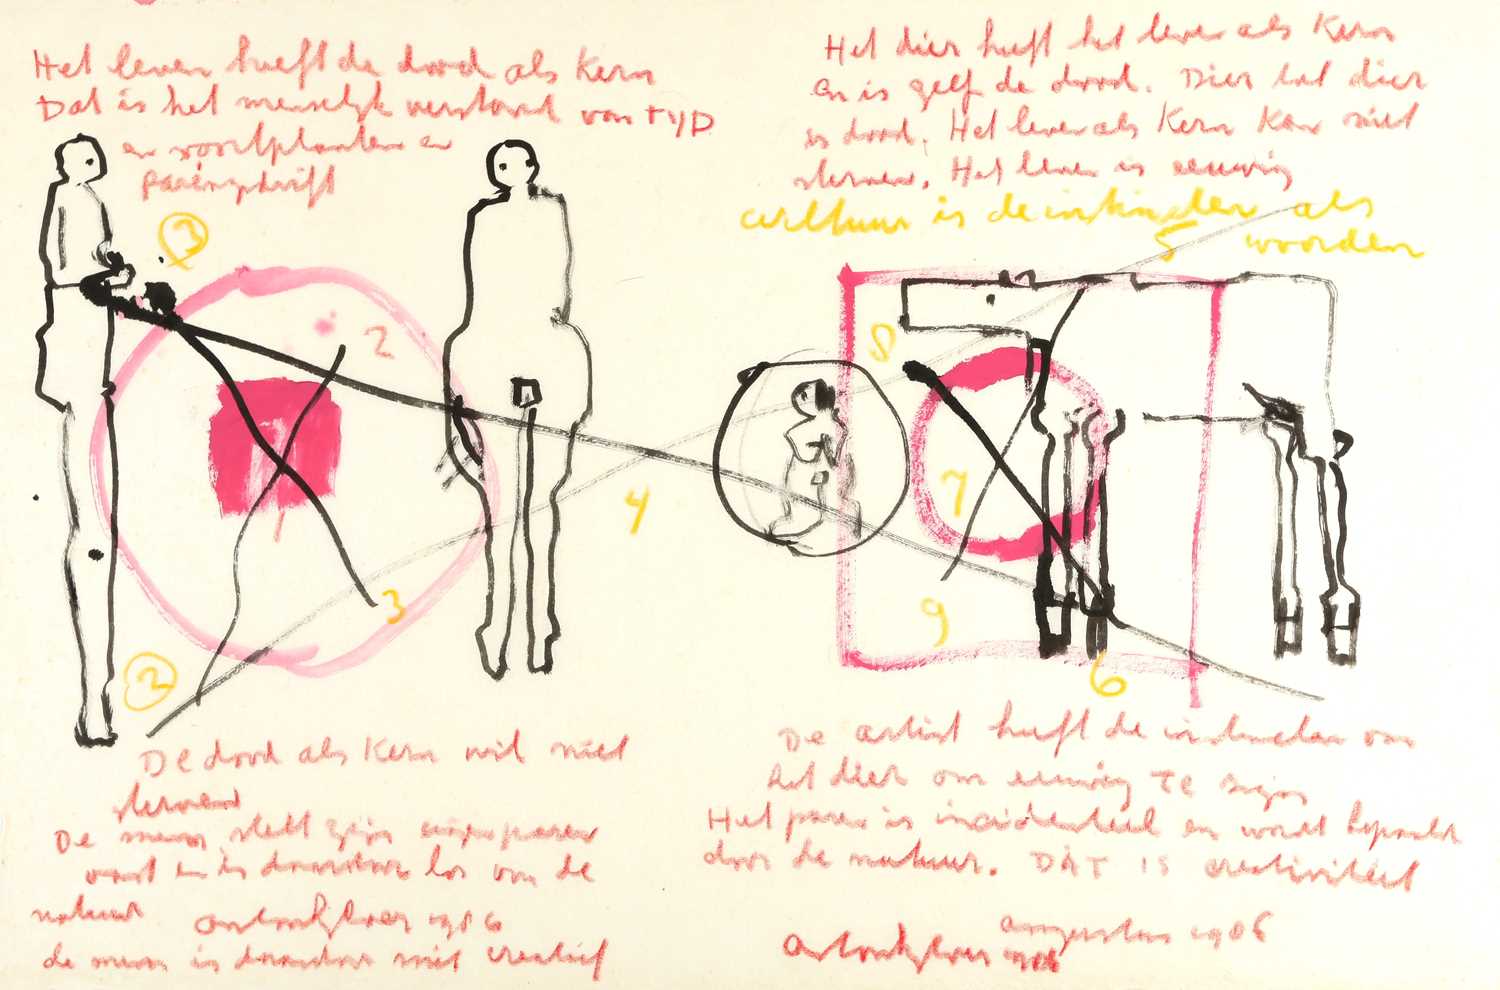 Het leven heeft de dood als Kern
Dat is het menselijk verstand van tijd
en voortplanten en
paringsdrift
Het dier heeft het leven als Kern
en is zelf de dood. Dier tot dier
is dood. Het leven als Kern Kan niet
sterven. Het leven is eeuwig
cultuur is de instincten als
woorden
3
2
1
3
2
4
5
8
7
9
6
De dood als Kern wil niet
sterven
De mens stelt zijn eigen paren
vast en is daardoor los van de
natuur
de mens is daardoor niet creatief
De artist heeft de instincten van
het dier om eeuwig te zijn
Het paren is incidenteel en wordt bepaald
door de natuur. DAT IS creativiteit
augustus 1986